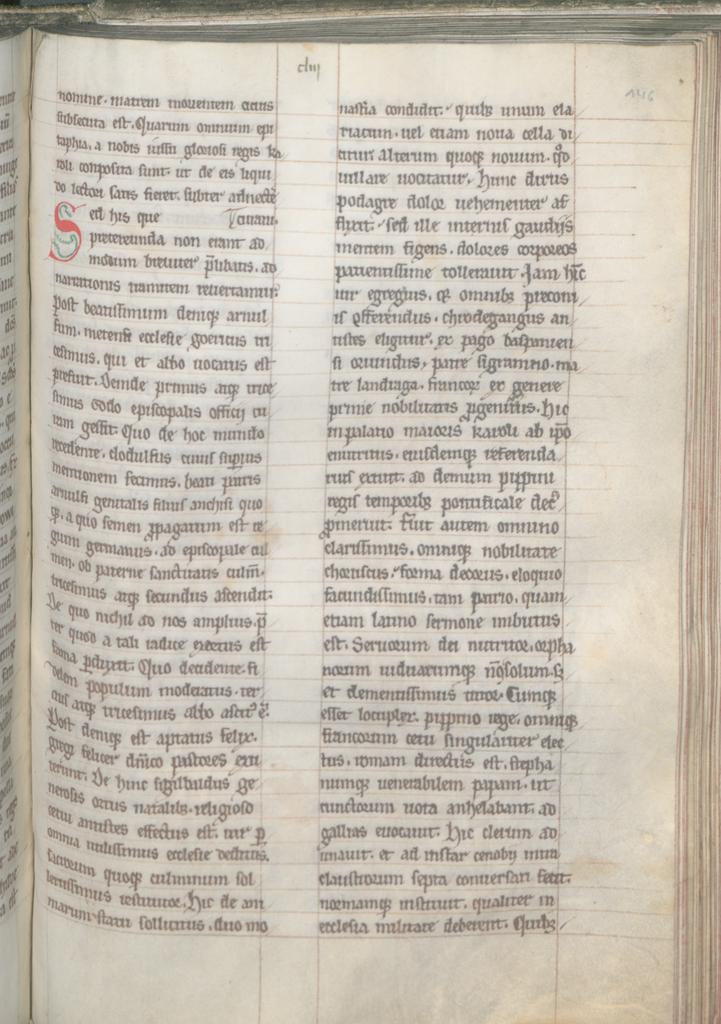 cliij
146
nomine. matrem morientem citius
subsecuta est. Quarum omnium epi
taphia, a nobis iussu gloriosi regis ka
roli composita sunt. ut de eis liqui
do lectori satis fieret. subter adnectere
curaui.
Sed his que
pretereunda non erant ad
modum breuiter p̄libatis. ad
narrationis tramitem reuertamur.
Post beatissimum deniq; arnul
fum. metensē ecclesie goericus tri
cesimus. qui et abbo uocatus est
prefuit. Deinde primus atq; trice
simus godo episcopalis officii cu
ram gessit. Quo de hoc mundo
recedente. clodulfus cuius sup̄ius
mentionem fecimus. beati patris
arnulfi genitalis filius anchisi quo
q;. a quo semen ꝓpagatum est re
gum germanus. ad episcopale cul
men. ob paterne sanctitatis culm̄.
tricesimus atq; secundus ascendit.
De quo nichil ad nos amplius. p̄
ter quod a tali radice exortus est
fama ꝑduxit. Quo decidente. fi
delem populum moderatus. ter
cius atq; tricesimus abbo ascit᷒ ē.
Post deniq; est aptatus felix.
gregē feliciter dn̄ico pastores exti
terunt. De hinc sigibaldus ge
nerosis ortus natalib; religioso
cetu antistes effectus est. uir ꝑ
omnia utilissimus ecclesie deditus.
facitorum quoq; culminum sol
lertissimus restitutor. Hic de ani
marum statu sollicitus. duo mo
nastia condidit. quib; unum ela
riacum. uel etiam noua cella di
citur. alterum quoq; nouum. qd̄
uillare uocitatur. Hunc dirus
podagre dolor uehementer af
flixit. sed ille internis gaudijs
mentem figens. dolores corporeos
patientissime tollerauit. Iam hīc
uir egregius. et omnib; preconi
is efferendus. chrodegangus an
tistes eligitur. ex pago haspanien
si oriundus, patre sigramno. ma
tre landraga. francor̄ ex genere
prime nobilitatis ꝓgenitus. Hic
in palatio maioris karoli ab ip̄o
enutritus. eiusdemq; referenda
rius extitit. ac demum pippini
regis temporib; pontificale dec᷒
ꝓmeruit. Fuit autem omnino
clarissimus. omniq; nobilitate
choruscus. forma decorus. eloquio
facundissimus. tam patrio. quam
etiam latino sermone imbutus
est. Seruorum dei nutritor. orpha
norum uiduarumq; n̄ solum. s;
et clementissimus tutor. Cumq;
esset locuplex. pippino rege. omniq;
francorum cetu singulariter elec
tus. romam directus est. stepha
numq; uenerabilem papam. ut
cunctorum uota anhelabant. ad
gallias euocauit. Hic clerum ad
unauit. et ad instar cenobij intra
claustrorum septa conuersari fecit.
normamq; instituit. qualiter in
ecclesia militare deberent. Quib;